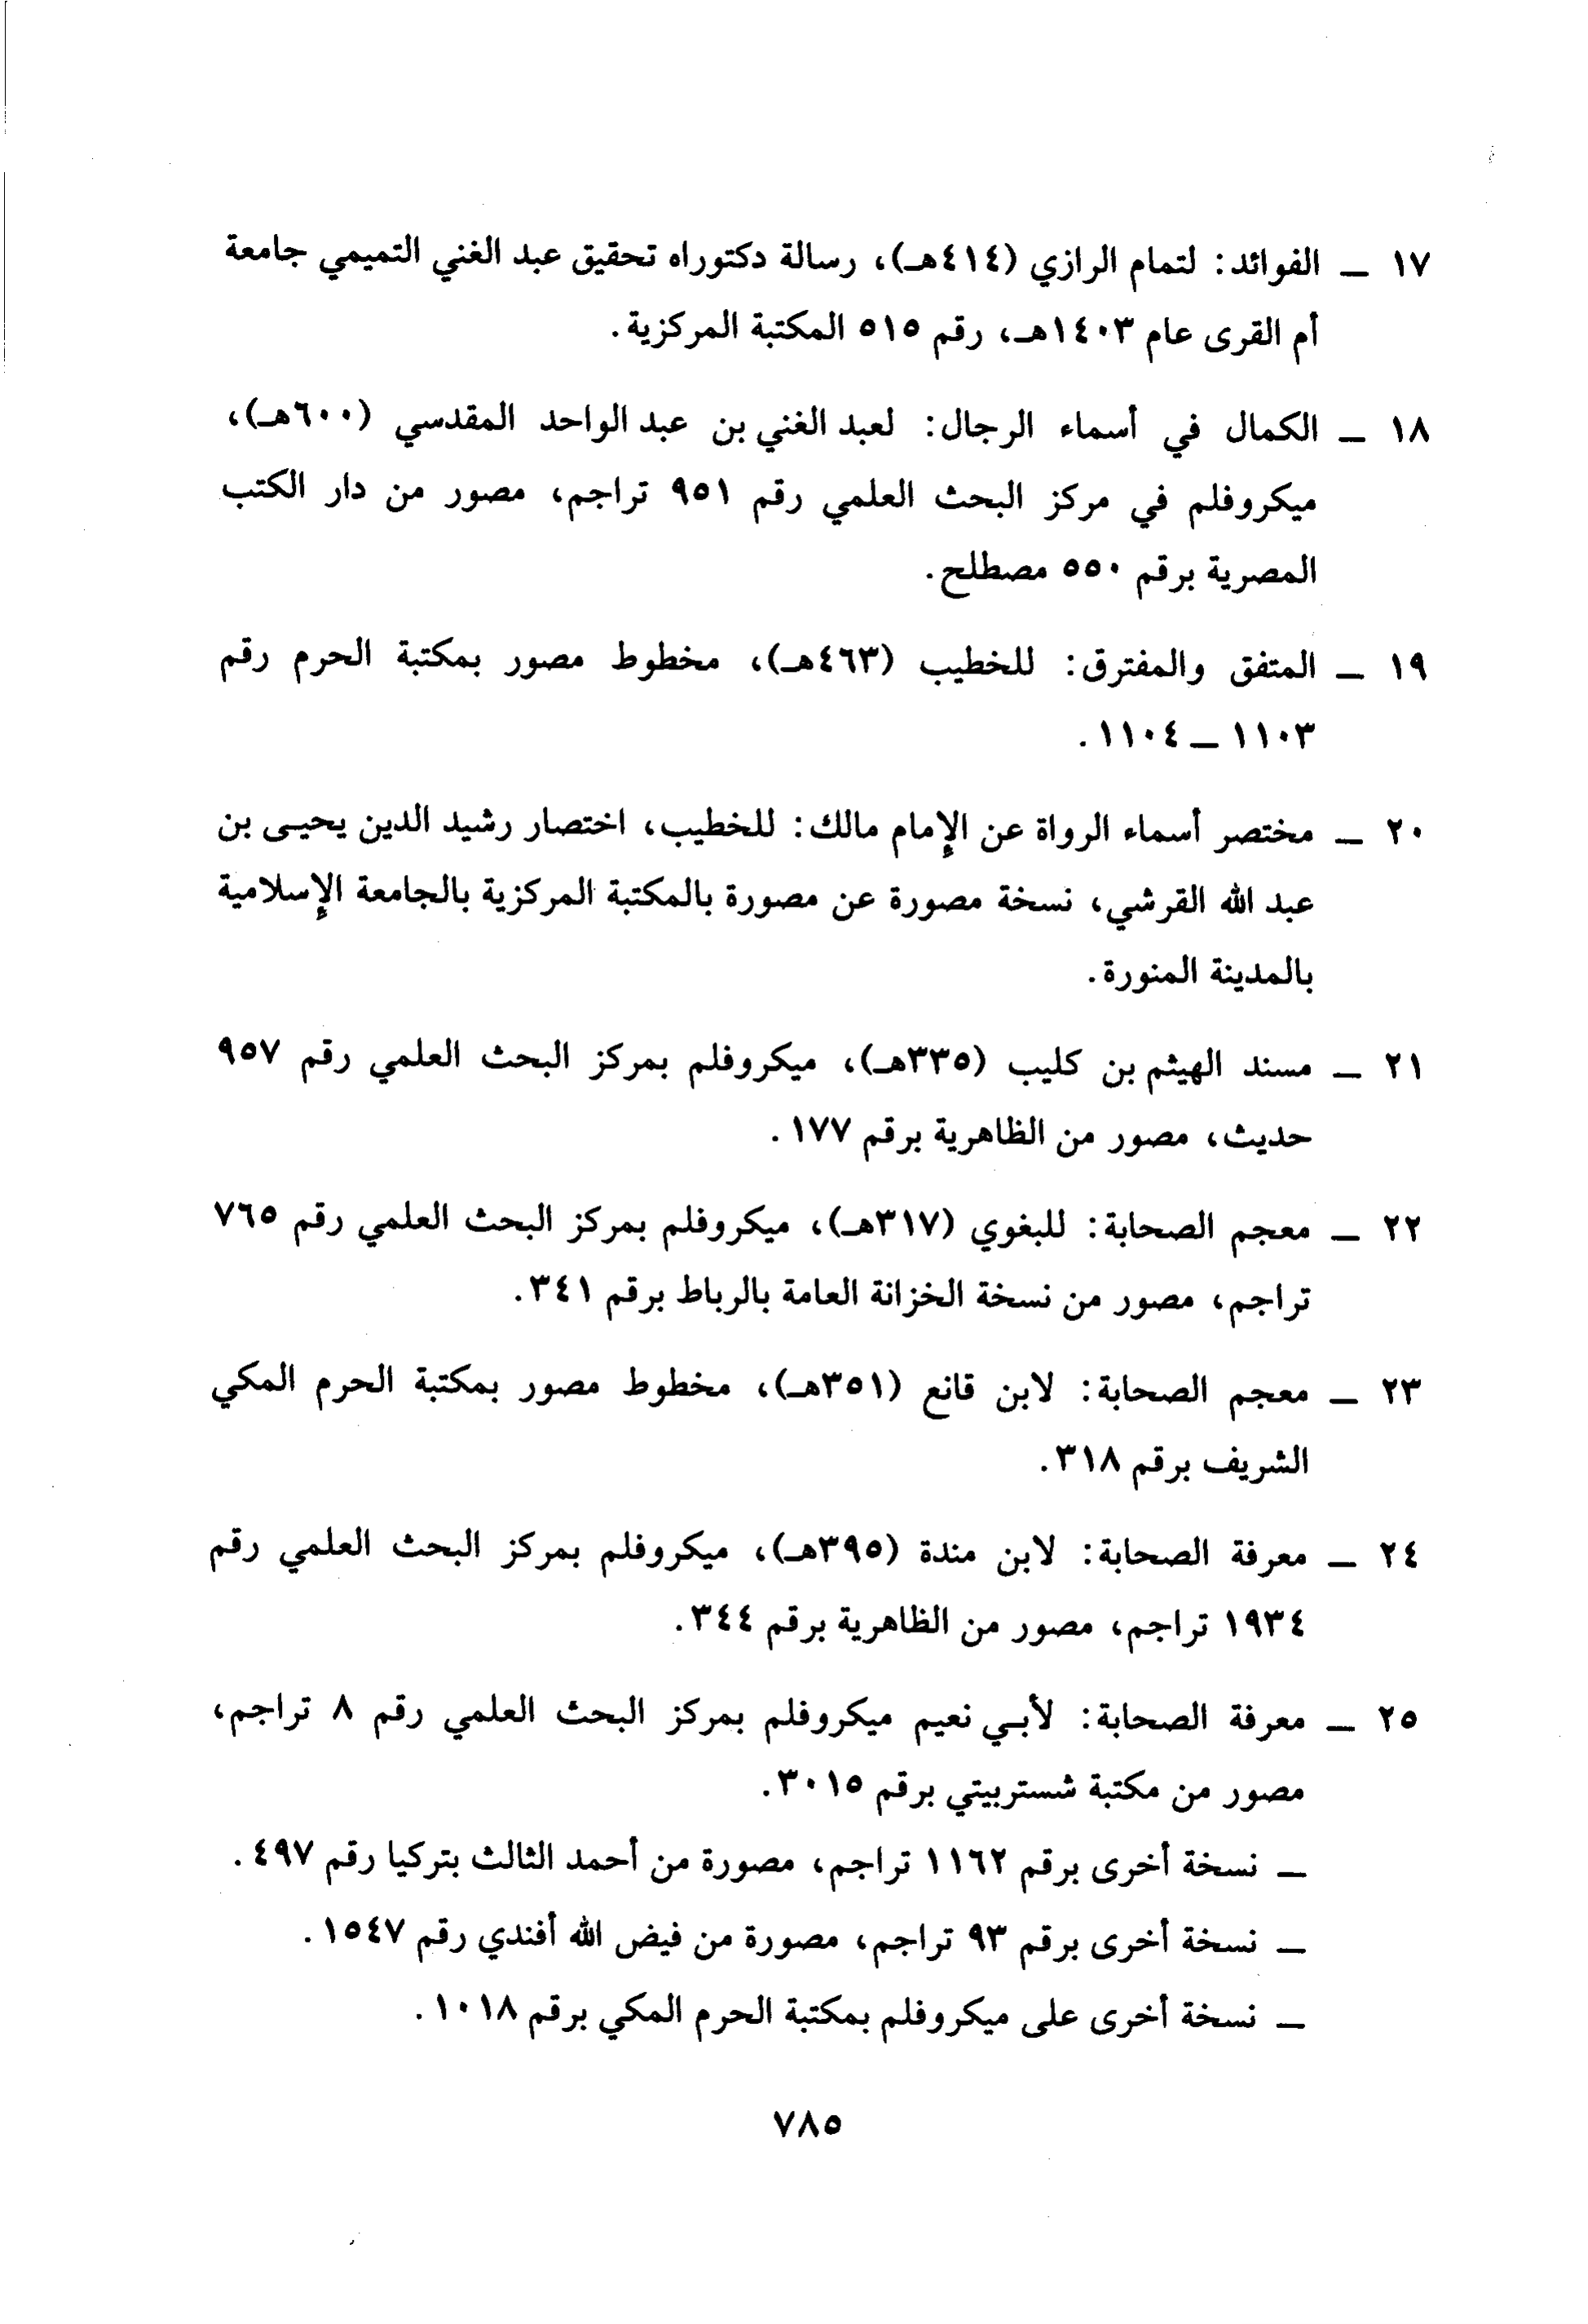 ١٧ ــ الفوائد: لتمام الرازي (٤١٤هـ)، رسالة دكتوراه تحقيق عبد الغني التميمي جامعة
أم القرى عام ١٤٠٣هـ، رقم ٥١٥ المكتبة المركزية.
١٨ ــ الكمال في أسماء الرجال: لعبد الغني بن عبد الواحد المقدسي (٦٠٠هـ)،
ميكروفلم في مركز البحث العلمي رقم ٩٥١ تراجم، مصور من دار الكتب
المصرية برقم ٥٥٠ مصطلح.
١٩ ــ المتفق والمفترق: للخطيب (٤٦٣هـ)، مخطوط مصور بمكتبة الحرم رقم
١١٠٣ ــ ١١٠٤.
٢٠ ــ مختصر أسماء الرواة عن الإمام مالك: للخطيب، اختصار رشيد الدين يحيى بن
عبد الله القرشي، نسخة مصورة عن مصورة بالمكتبة المركزية بالجامعة الإسلامية
بالمدينة المنورة.
٢١ ــ مسند الهيثم بن كليب (٣٣٥هـ)، ميكروفلم بمركز البحث العلمي رقم ٩٥٧
حديث، مصور من الظاهرية برقم ١٧٧.
٢٢ ــ معجم الصحابة: للبغوي (٣١٧هـ)، ميكروفلم بمركز البحث العلمي رقم ٧٦٥
تراجم، مصور من نسخة الخزانة العامة بالرباط برقم ٣٤١.
٢٣ ــ معجم الصحابة: لابن قانع (٣٥١هـ)، مخطوط مصور بمكتبة الحرم المكي
الشريف برقم ٣١٨.
٢٤ ــ معرفة الصحابة: لابن مندة (٣٩٥هـ)، ميكروفلم بمركز البحث العلمي رقم
١٩٣٤ تراجم، مصور من الظاهرية برقم ٣٤٤.
٢٥ ــ معرفة الصحابة: لأبي نعيم ميكروفلم بمركز البحث العلمي رقم ٨ تراجم،
مصور من مكتبة شستربيتي برقم ٣٠١٥.
ــ نسخة أخرى برقم ١١٦٢ تراجم، مصورة من أحمد الثالث بتركيا رقم ٤٩٧.
ــ نسخة أخرى برقم ٩٣ تراجم، مصورة من فيض الله أفندي رقم ١٥٤٧.
ــ نسخة أخرى على ميكروفلم بمكتبة الحرم المكي برقم ١٠١٨.
٧٨٥